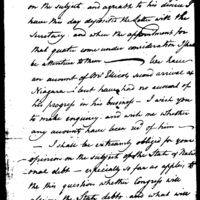 on the subject and agreeable to his desire I
have this day deposited the Letter with the
Secretary. and when the appointments for
that quarter come under consideration I shall
be attentive to them — We have
an account of Mr Ellicots second arrival at
Niagara — but have had no account of
his progress in his business — I wish you
to make enquiry and write me whether
any accounts have been recd of him —
— I shall be extremely obliged for your
opinion on the subject of the State & National
debt — especially so far as applies to
the this question whether Congress will
the State debts and what will